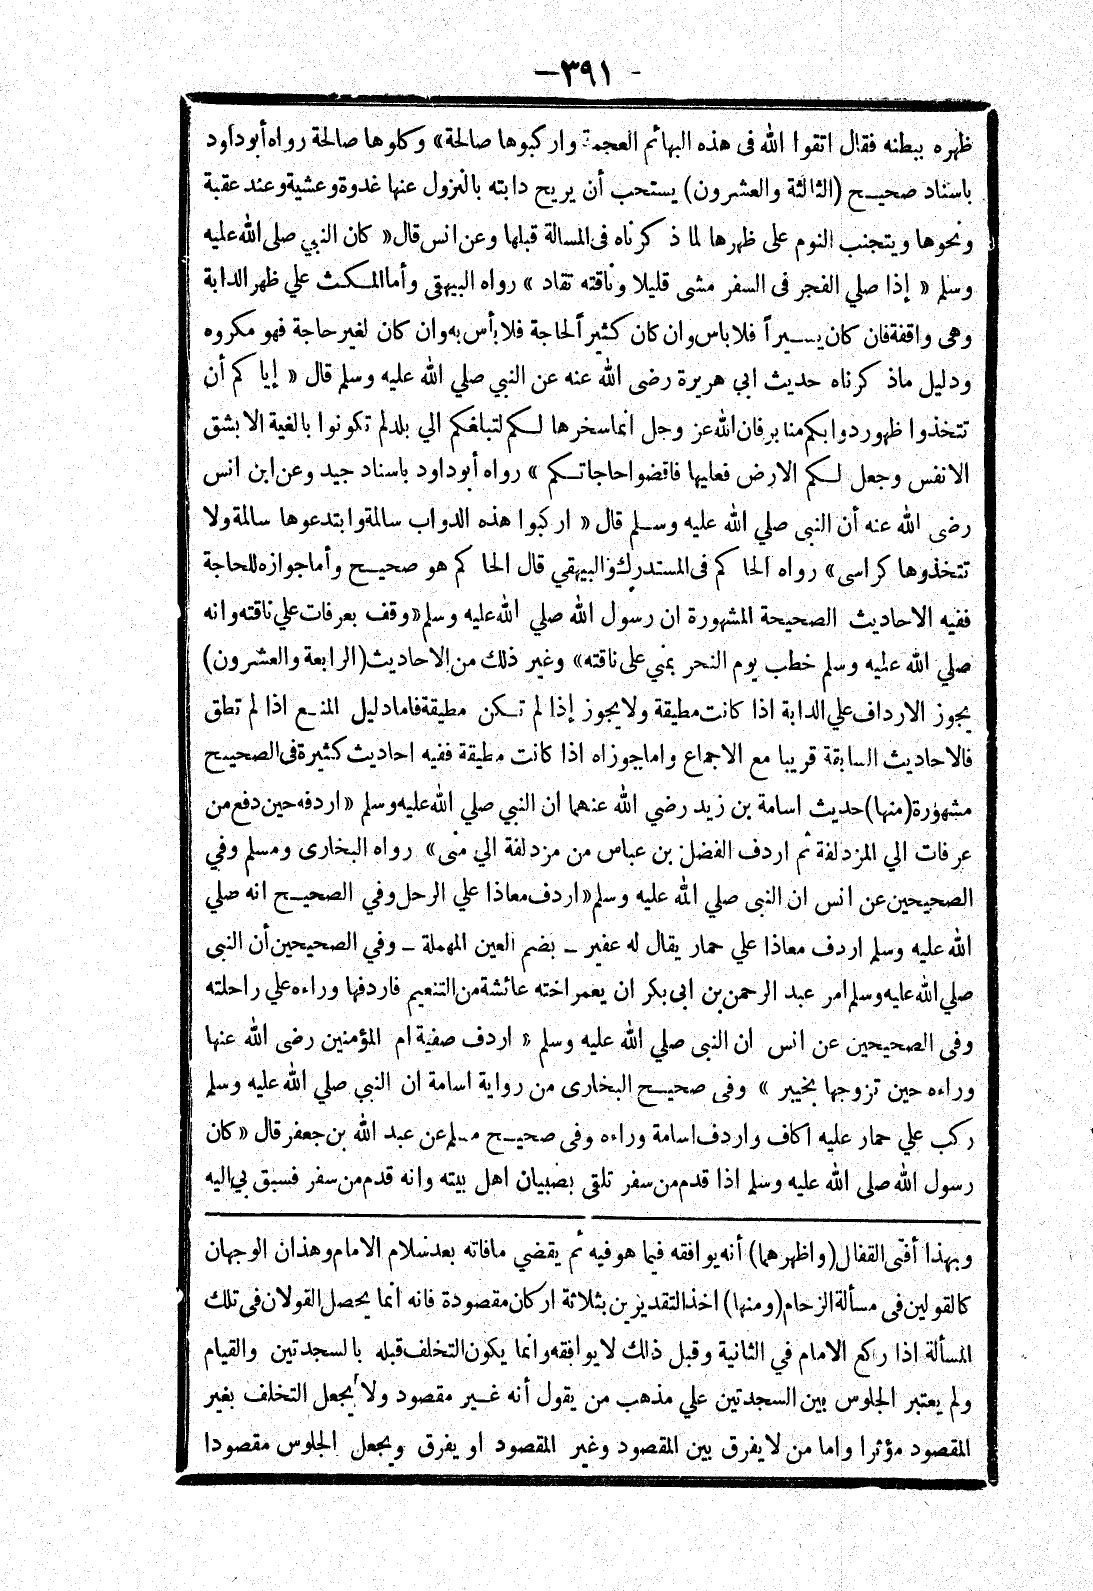 -٣٩١-
ظهره ببطنه فقال اتقوا الله فى هذه البهائم العجمة واركبوها صالحة» وكلوها صالحة رواه أبوداود
باسناد صحيح (الثالثة والعشرون) يستحب أن يريح دابته بالنزول عنها غدوة وعشية وعند عقبة
ونحوها ويتجنب النوم على ظهرها لما ذكرناه فى المسالة قبلها وعن انس قال « كان النبي صلى الله عليه
وسلم « إذا صلي الفجر فى السفر مشى قليلا وناقته تقاد » رواه البيهقى وأما المكث علي ظهر الدابة
وهى واقفة فان كان يسيراً فلا باس وان كان كثيراً لحاجة فلا بأس به وان كان لغير حاجة فهو مكروه
ودليل ماذ كرناه حديث ابي هريرة رضى الله عنه عن النبي صلي الله عليه وسلم قال « إيا كم أن
تتخذوا ظهور دوابكم منابر فان الله عز وجل انما سخرها لكم لتبلغكم الي بلد لم تكونوا بالغية الا بشق
الانفس وجعل لكم الارض فعليها فاقضوا حاجاتكم » رواه أبوداود باسناد جيد وعن ابن انس
رضى الله عنه أن النبى صلي الله عليه وسلم قال « اركبوا هذه الدواب سالمة وابتدعوها سالمة ولا
تتخذوها كراسى» رواه الحا كم فى المستدرك والبيهقي قال الحا كم هو صحيح وأما جوازه للحاجة
ففيه الاحاديث الصحيحة المشهورة ان رسول الله صلي الله عليه وسلم «وقف بعرفات علي ناقته وانه
صلي الله عليه وسلم خطب يوم النحر بمني على ناقته» وغير ذلك من الاحاديث (الرابعة والعشرون)
يجوز الارداف علي الدابة اذا كانت مطيقة ولا يجوز إذا لم تكن مطيقة فاما دليل المنع اذا لم تطق
فالاحاديث السابقة قريبا مع الاجماع واما جوزاه اذا كانت مطيقة ففيه احاديث كثيرة فى الصحيح
مشهورة (منها) حديث اسامة بن زيد رضي الله عنهما ان النبي صلي الله عليه وسلم « اردفه حين دفع من
عرفات الي المزدلفة ثم اردف الفضل بن عباس من مزدلفة الي منى» رواه البخارى ومسلم وفي
الصحيحين عن انس ان النبى صلي الله عليه وسلم « اردف معاذا علي الرحل وفي الصحيح انه صلي
الله عليه وسلم اردف معاذا علي حمار يقال له عفير ـ بضم العين المهملة ـ وفي الصحيحين أن النبى
صلي الله عليه وسلم امر عبد الرحمن بن ابي بكر ان يعمر اخته عائشة من التنعيم فاردفها وراءه علي راحلته
وفى الصحيحين عن انس ان النبى صلي الله عليه وسلم « اردف صفية ام المؤمنين رضى الله عنها
وراءه حين تزوجها بخيبر » وفى صحيح البخارى من رواية اسامة ان النبي صلي الله عليه وسلم
ركب علي حمار عليه اكاف واردف اسامة وراءه وفى صحيح مسلم عن عبد الله بن جعفر قال « كان
رسول الله صلى الله عليه وسلم اذا قدم من سفر تلقى بصبيان اهل بيته وانه قدم من سفر فسبق بي اليه
وبهذا أفتى القفال (واظهرهما) أنه يوافقه فيما هو فيه ثم يقضي مافاته بعد سلام الامام وهذان الوجهان
كالقولين فى مسألة الزحام (ومنها) اخذ التقديرين بثلاثة اركان مقصودة فانه انما يحصل القولان فى تلك
المسألة اذا ركع الامام في الثانية وقبل ذلك لا يوافقه وانما يكون التخلف قبله بالسجدتين والقيام
ولم يعتبر الجلوس بين السجدتين علي مذهب من يقول أنه غير مقصود ولا يجعل التخلف بغير
المقصود مؤثرا واما من لا يفرق بين المقصود وغير المقصود او يفرق ويجعل الجلوس مقصودا